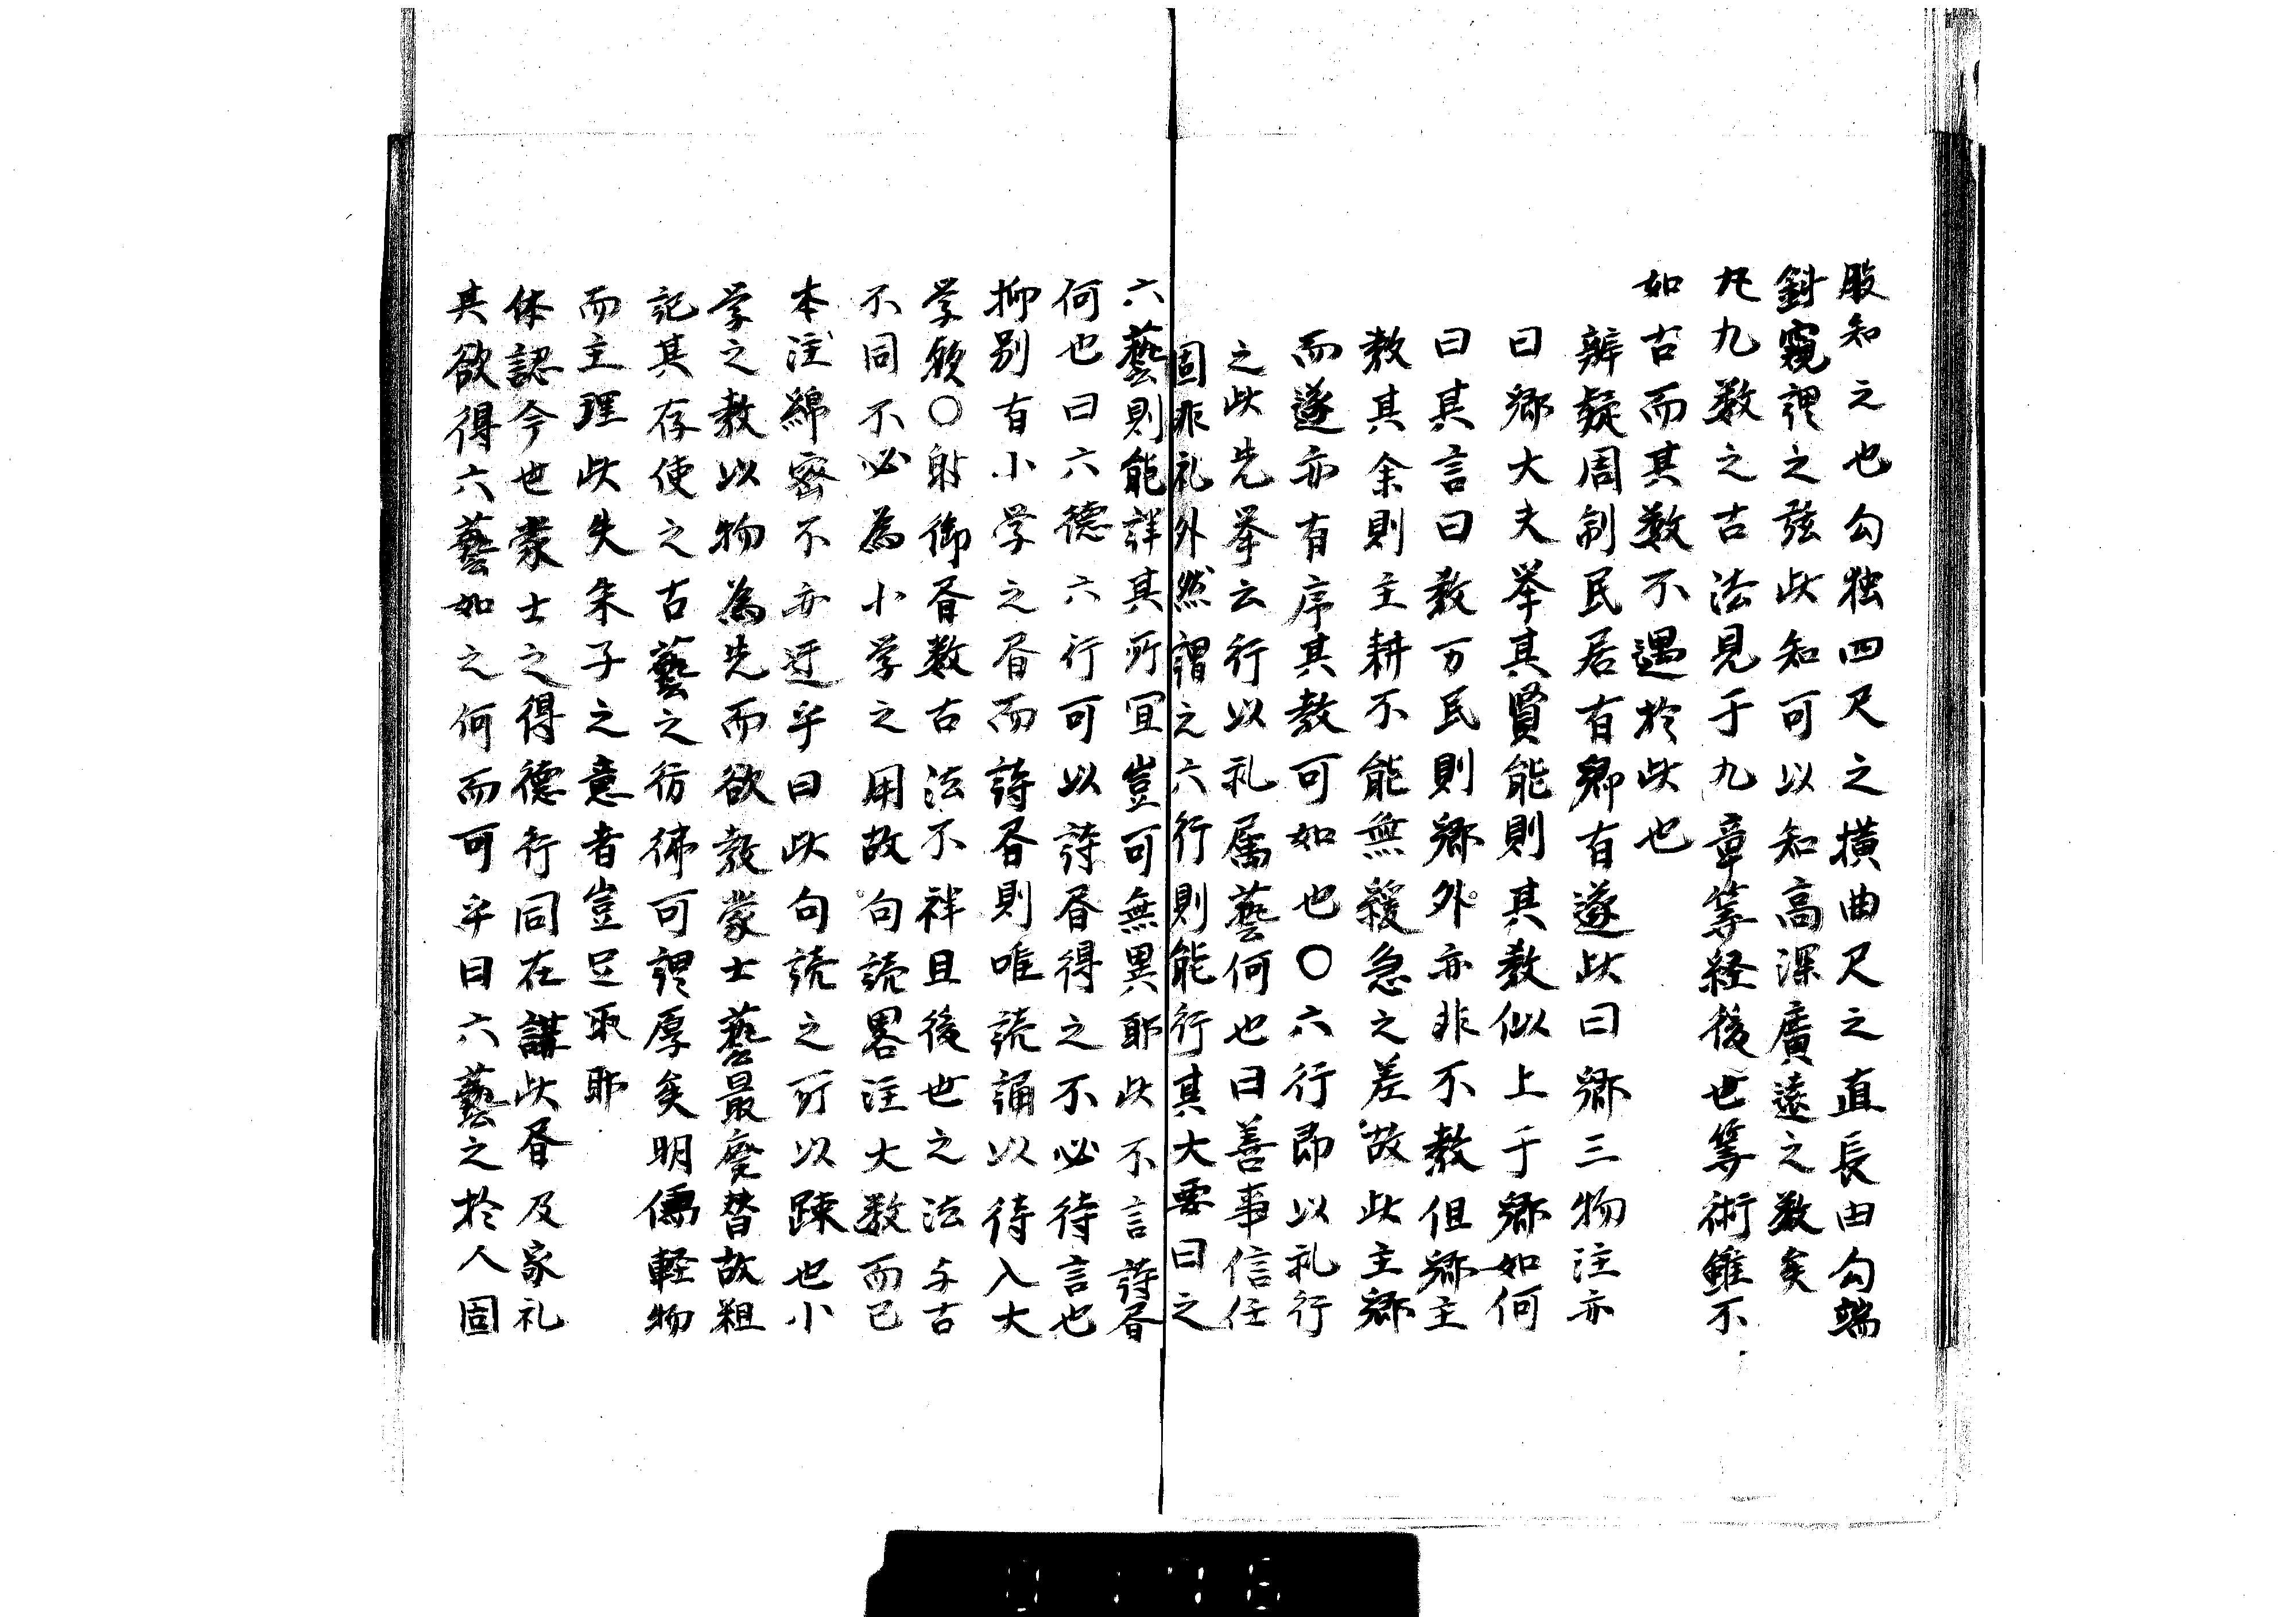 股知之也勾独四尺之横曲尺之直長由勾端
斜窺謂之弦此知可以知高深廣遠之数矣
凡九数之古法見于九章筭経後世筭術雖不
如古而其数不過於此也
辨疑周制民居有郷有遂此曰郷三物注亦
曰郷大夫挙其賢能則其教似上于郷如何
曰其言曰教万民則郷外亦非不教但郷主
教其余則主耕不能無緩急之差故此主郷
而遂亦有序其教可如也〇六行即以礼行
之此先挙云行以礼属藝何也曰善事信任
固非礼外然謂之六行則能行其大要曰之
六藝則能詳其所宜豈可無異耶此不言詩眘
何也曰六德六行可以詩眘得之不必待言也
抑別有小学之眘而詩眘則唯読誦以待入大
学歟〇射御眘数古法不祥且後世之法与古
不同不必為小学之用故句読畧注大教而已
本注綿密不亦迂乎曰此句読之所以踈也小
学之教以物為先而欲教蒙士藝最廃替故粗
記其存使之古藝之彷彿可謂厚矣明儒軽物
而主理此失朱子之意者豈足取耶
体認今世蒙士之得德行同在講此眘及家礼
其欲得六藝如之何而可乎曰六藝之於人固